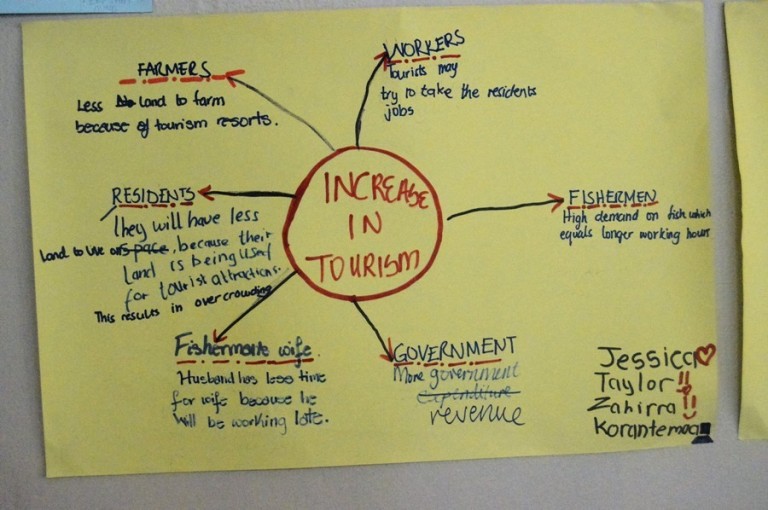 FARMERS
Less land to farm
because of tourism resorts.
WORKERS
Tourists may
try to take the residents
jobs
RESIDENTS
They will have less
land to live on space, because their
land is being used
for tourist attractions.
This results in overcrowding
INCREASE
IN
TOURISM
FISHERMEN
High demand on fish which
equals longer working hours
Fisherman's wife
Husband has less time
for wife because he
will be working late.
GOVERNMENT
More government
expenditure
revenue
Jessica
Taylor!!
Zahirra!!
Korantemaa